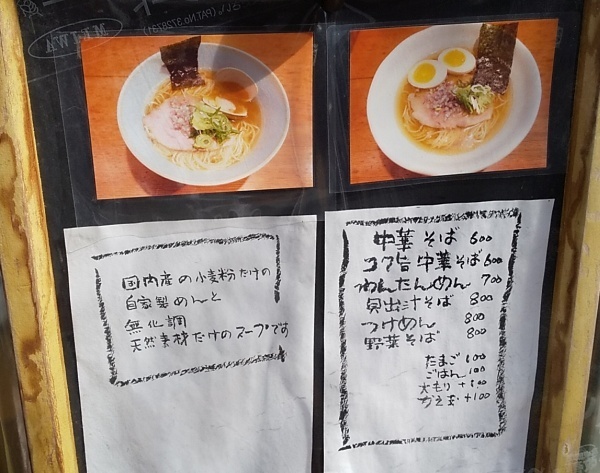 国内産の小麦粉だけの
自家製めんと
無化調
天然素材だけのスープです
中華そば 600
コク旨中華そば 600
わんたんめん 700
貝出汁そば 800
つけめん 800
野菜そば 800
たまご 100
ごはん 100
大もり +100
かえ玉 +100